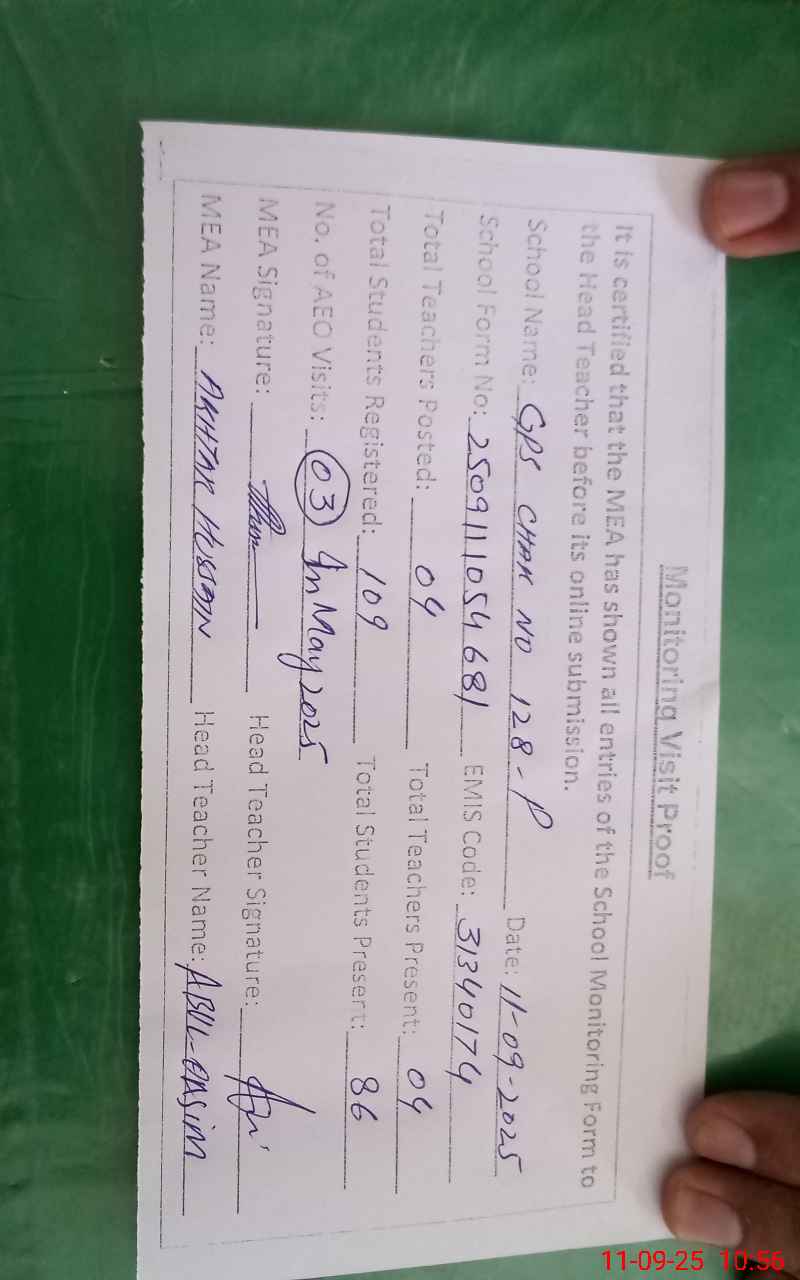 Monitoring Visit Proof
It is certified that the MEA has shown all entries of the School Monitoring Form to
the Head Teacher before its online submission.
School Name: GPS CHAK NO 128-P Date: 11-09-2025
School Form No: 2509111054681 EMIS Code: 31340174
Total Teachers Posted: 04 Total Teachers Present: 04
Total Students Registered: 109 Total Students Present: 86
No. of AEO Visits: 03 In May 2025
MEA Signature: Head Teacher Signature:
MEA Name: AKHTAR HUSSAIN Head Teacher Name: ABUL-QASIM
11-09-25 10:56